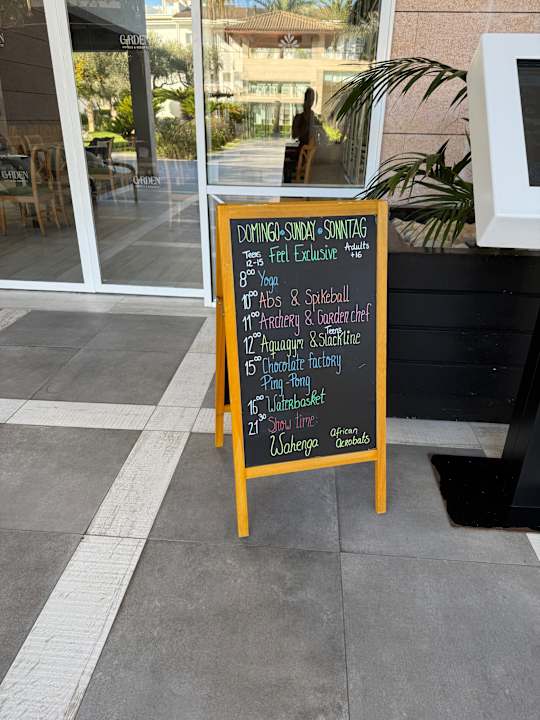 GARDEN
HOTELS & RESORTS
GARDEN
GARDEN
DOMINGO • SUNDAY • SONNTAG
Teens 12-15 Feel Exclusive Adults +16
8⁰⁰ Yoga
10⁰⁰ Abs & Spikeball
11⁰⁰ Archery & Garden chef
12⁰⁰ Aquagym & Slackline Teens
15⁰⁰ Chocolate factory
Ping-Pong
16⁰⁰ Waterbasket
21³⁰ Show time:
Wahenga African Acrobats